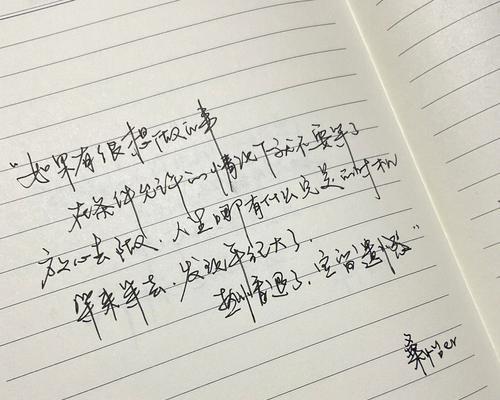 “如果有很想做的事
在条件允许的情况下就不要等了
放心去做，人生哪有什么完美的时机
等来等去，发现年纪大了，
热情退了，空留遗憾”